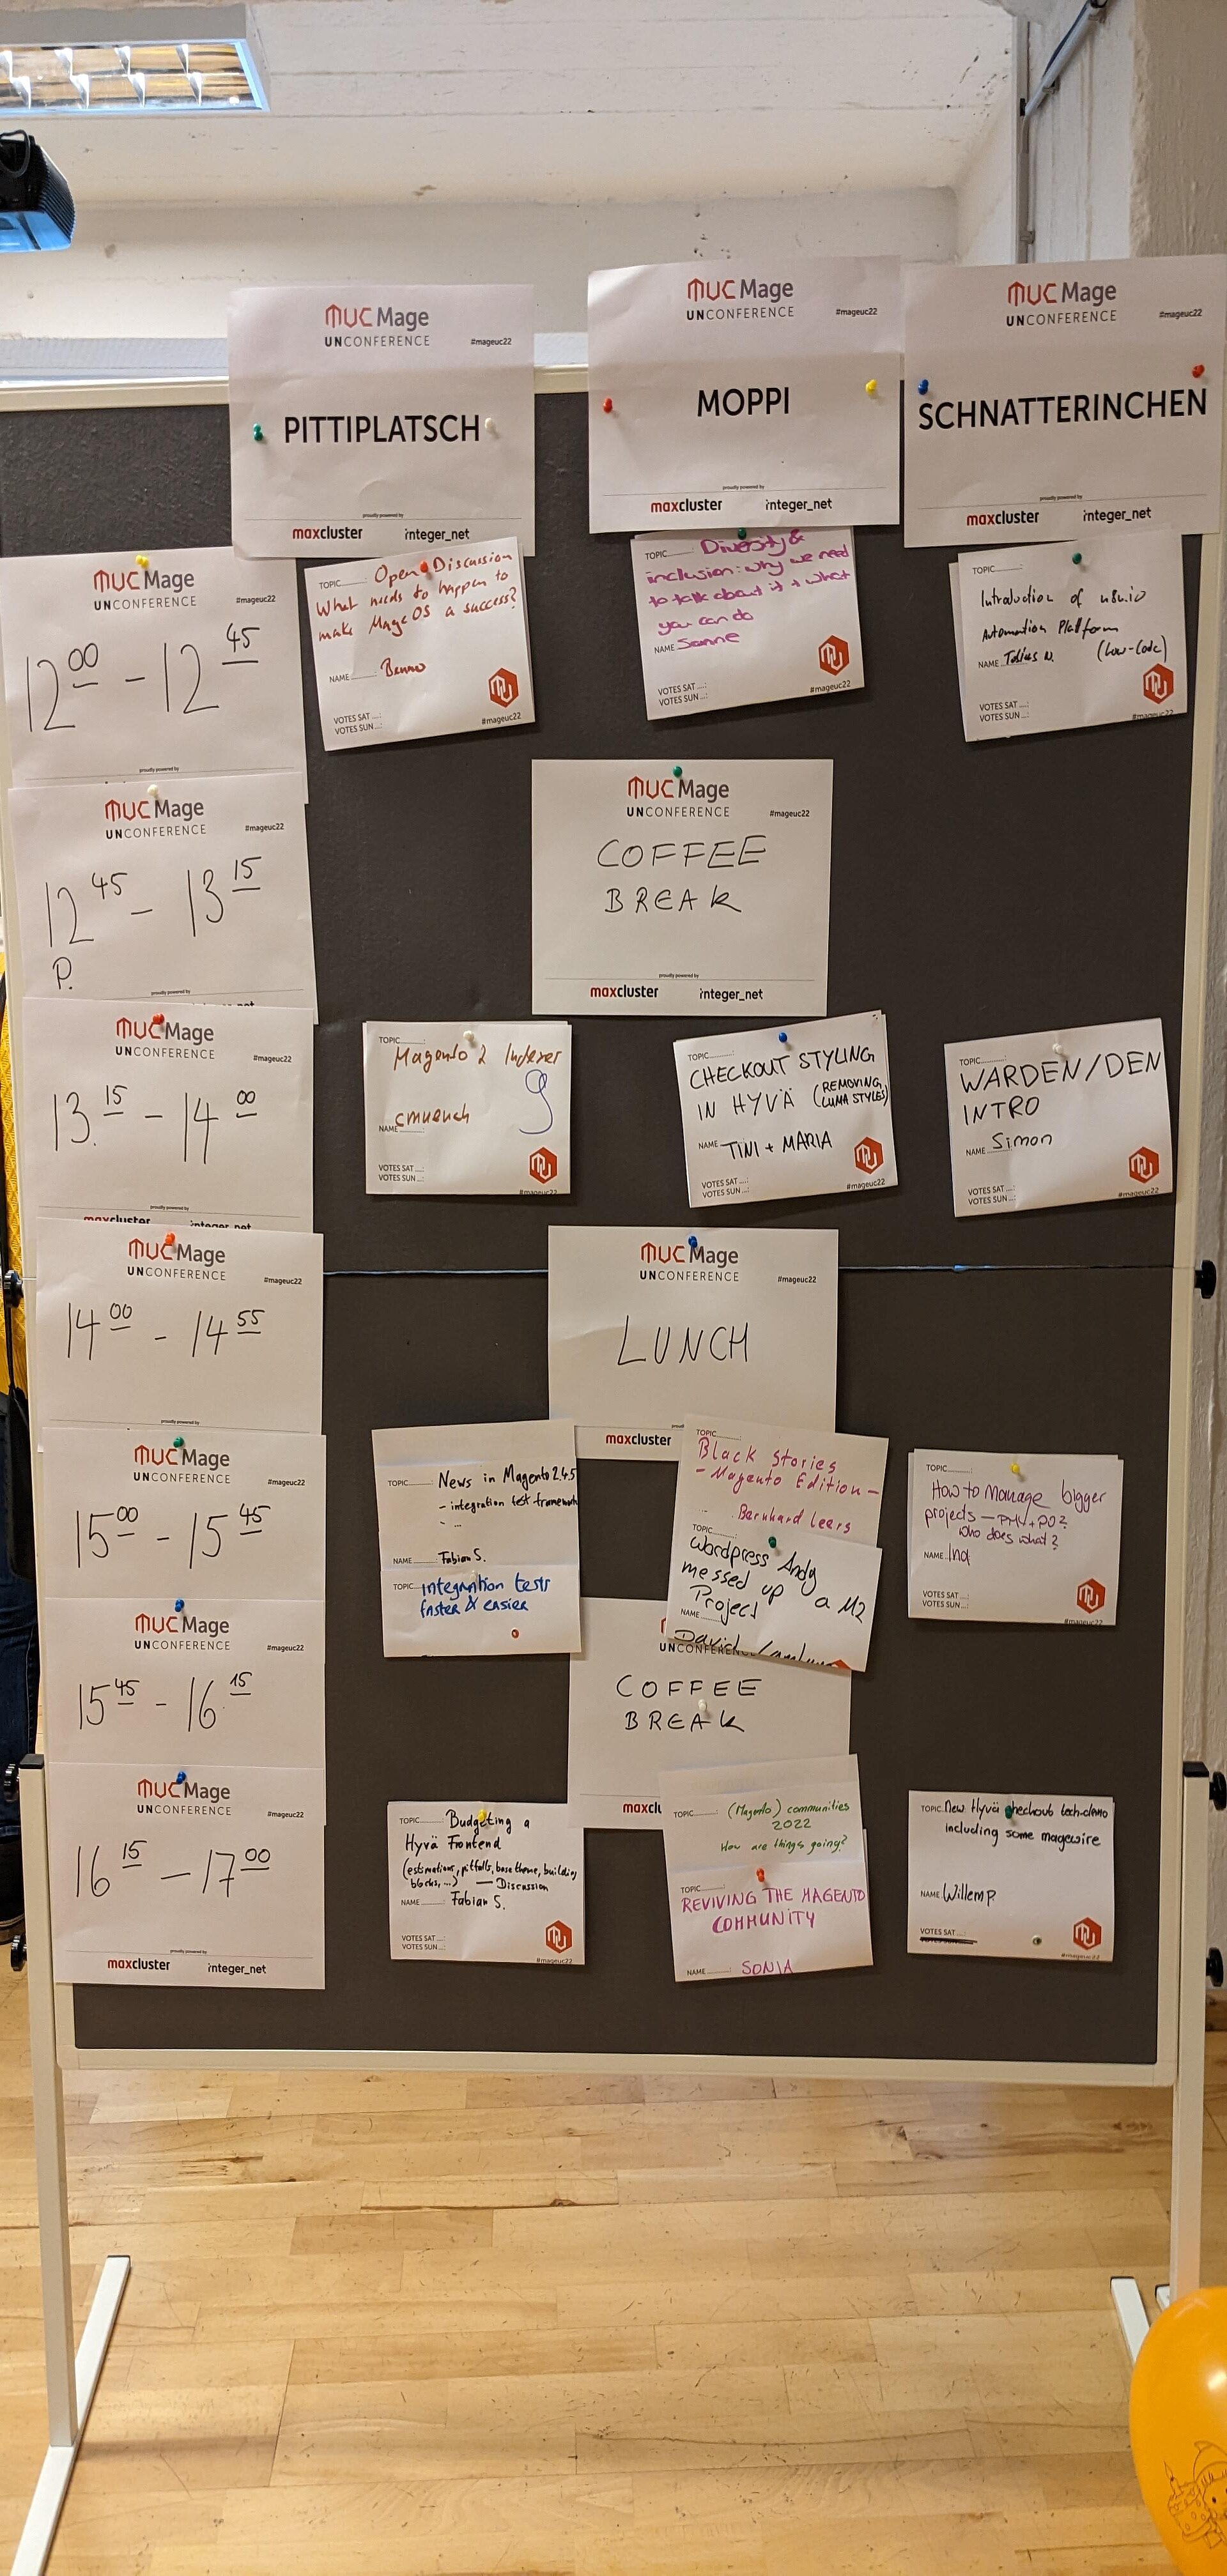 MUC Mage
UNCONFERENCE
#mageuc22
PITTIPLATSCH
proudly powered by
maxcluster integer_net
MUC Mage
UNCONFERENCE
#mageuc22
MOPPI
proudly powered by
maxcluster integer_net
MUC Mage
UNCONFERENCE
#mageuc22
SCHNATTERINCHEN
proudly powered by
maxcluster integer_net
MUC Mage
UNCONFERENCE
#mageuc22
12 00 - 12 45
proudly powered by
TOPIC Open Discussion
What needs to happen to
make MageOS a success?
NAME Benno
VOTES SAT ....:
VOTES SUN ...:
#mageuc22
TOPIC Diversity &
inclusion: why we need
to talk about it + what
you can do
NAME Sanne
VOTES SAT ....:
VOTES SUN ...:
#mageuc22
TOPIC
Introduction of n8n.io
Automation Platform
NAME Tobias N. (Low-Code)
VOTES SAT ....:
VOTES SUN ...:
#mageuc22
MUC Mage
UNCONFERENCE
#mageuc22
12 45 - 13 15
P.
proudly powered by
MUC Mage
UNCONFERENCE
#mageuc22
COFFEE
BREAK
proudly powered by
maxcluster integer_net
MUC Mage
UNCONFERENCE
#mageuc22
13 15 - 14 00
proudly powered by
maxcluster integer_net
TOPIC
Magento 2 Indexer
9
NAME cmuench
VOTES SAT ....:
VOTES SUN ...:
#mageuc22
TOPIC
CHECKOUT STYLING
IN HYVÄ (REMOVING
LUMA STYLES)
NAME TINI + MARIA
VOTES SAT ....:
VOTES SUN ...:
#mageuc22
TOPIC
WARDEN/DEN
INTRO
NAME Simon
VOTES SAT ....:
VOTES SUN ...:
#mageuc22
MUC Mage
UNCONFERENCE
#mageuc22
14 00 - 14 55
proudly powered by
MUC Mage
UNCONFERENCE
#mageuc22
LUNCH
maxcluster
MUC Mage
UNCONFERENCE
#mageuc22
15 00 - 15 45
TOPIC News in Magento 2.4.5
- integration test framework
- ...
NAME Fabian S.
TOPIC integration tests
faster & easier
TOPIC
Black Stories
- Magento Edition -
Bernhard Leers
TOPIC
Wordpress Andy
messed up a M2
Project
NAME
David
TOPIC
How to manage bigger
projects - PM + PO?
Who does what?
NAME Ina
VOTES SAT ....:
VOTES SUN ...:
#mageuc22
MUC Mage
UNCONFERENCE
#mageuc22
15 45 - 16 15
UNCONFERENCE
COFFEE
BREAK
maxcl
MUC Mage
UNCONFERENCE
#mageuc22
16 15 - 17 00
proudly powered by
maxcluster integer_net
TOPIC Budgeting a
Hyvä Frontend
(estimations, pitfalls, base theme, building
blocks, ...) - Discussion
NAME Fabian S.
VOTES SAT ....:
VOTES SUN ...:
#mageuc22
TOPIC (Magento) communities
2022
How are things going?
TOPIC
REVIVING THE MAGENTO
COMMUNITY
NAME SONJA
TOPIC New Hyvä checkout tech-demo
including some magewire
NAME Willem P.
VOTES SAT ....:
#mageuc22